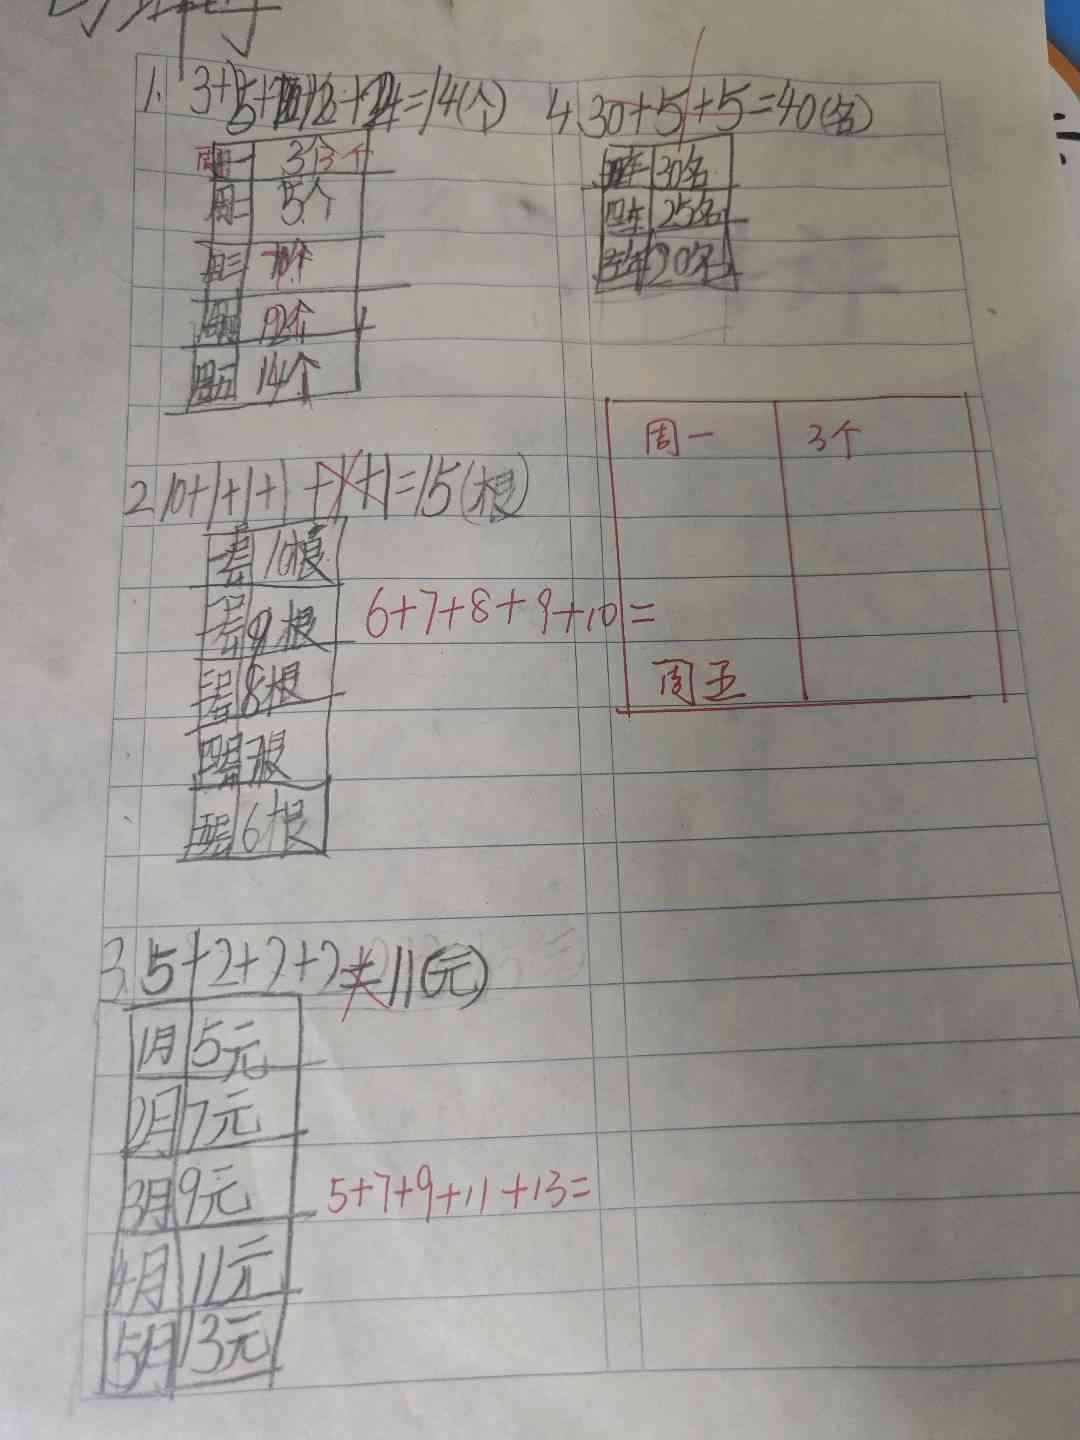 1. 3+5+ =14(个)
周一 3个 3个
周二 5个
周三 个
12个
周五 14个
2. 10+1+1+1+1+1=15(根)
一号 10根
二号 9根
三号 8根
四号 7根
五号 6根
6+7+8+9+10=
3. 5+2+2+2=11(元)
1月 5元
2月 7元
3月 9元
5+7+9+11+13=
4月 11元
5月 13元
4. 30+5+5=40(名)
30名
四年 25名
20名
周一 3个
周五